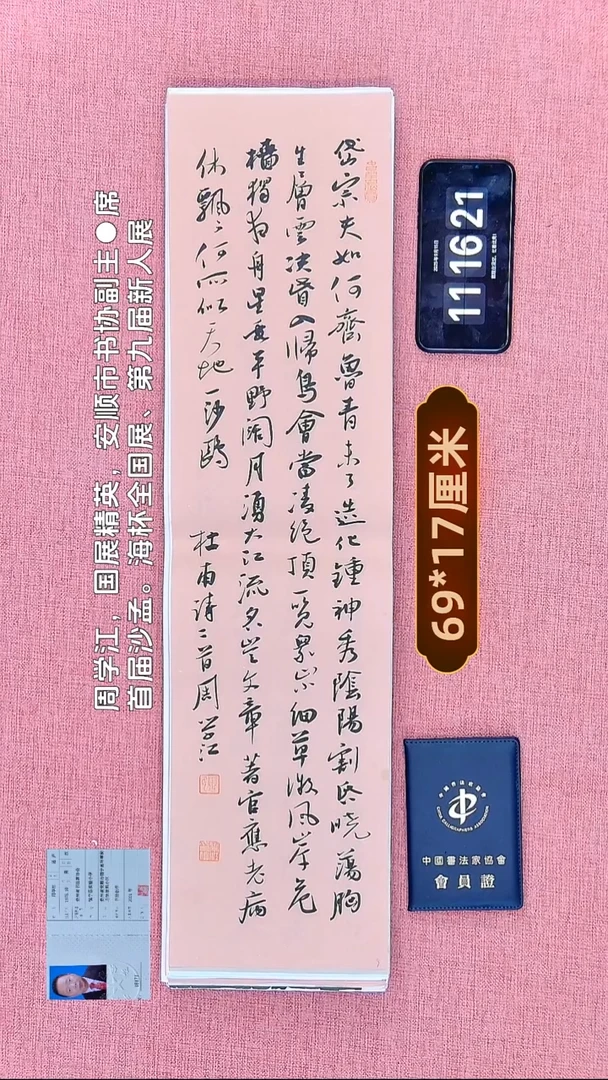 周学江，国展精英，安顺市书协副主●席
首届沙孟。海杯全国展、第九届新人展
岱宗夫如何齊魯青未了造化鍾神秀陰陽割昏曉蕩胸
生層雲決眥入歸鳥會當凌絕頂一覽眾山小細草微風岸危
檣獨夜舟星垂平野闊月湧大江流名豈文章著官應老病
休飄〻何所似天地一沙鷗
杜甫詩二首周學江
11 16 21
69*17厘米
中國書法家協會
CHINA CALLIGRAPHERS ASSOCIATION
中國書法家協會
會員證